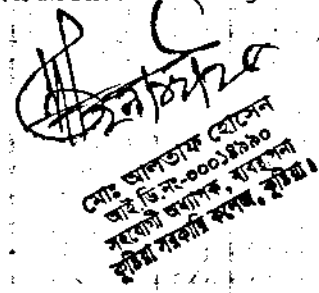 মোঃ আলতাফ হোসেন
আই ডি.নং-০০০১৪৯৯০
সহযোগী অধ্যাপক, ব্যবস্থাপনা
কুষ্টিয়া সরকারি কলেজ, কুষ্টিয়া।